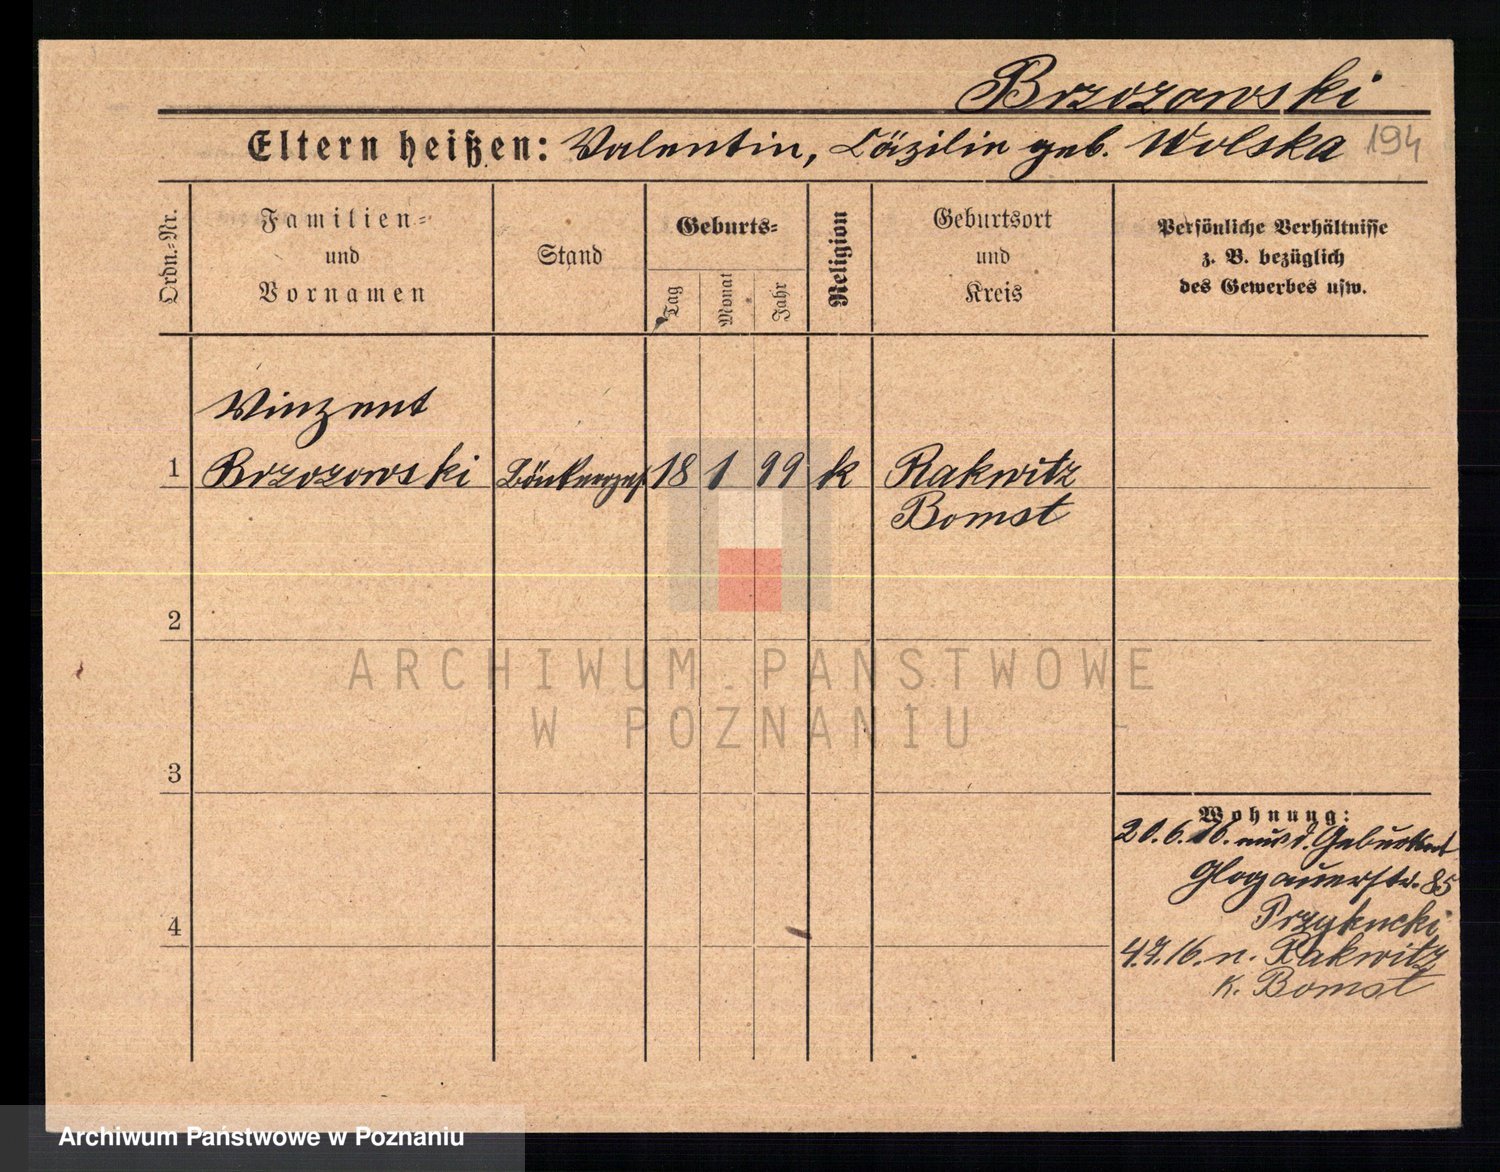 Brzozowski
Eltern heißen: Valentin, Cäzilie geb. Wolska 194
Ordn.-Nr.
Familien-
und
Vornamen
Stand
Geburts-
Tag
Monat
Jahr
Religion
Geburtsort
und
Kreis
Persönliche Verhältnisse
z. B. bezüglich
des Gewerbes usw.
Winzent
1 Brzozowski 18 1 99 k Rakwitz
Bomst
2
ARCHIWUM PAŃSTWOWE
W POZNANIU
3
Wohnung:
20.6.16. d. Geburtsort
Glogauerstr. 85
4.7.16. n. Rakwitz
K. Bomst
4
Archiwum Państwowe w Poznaniu